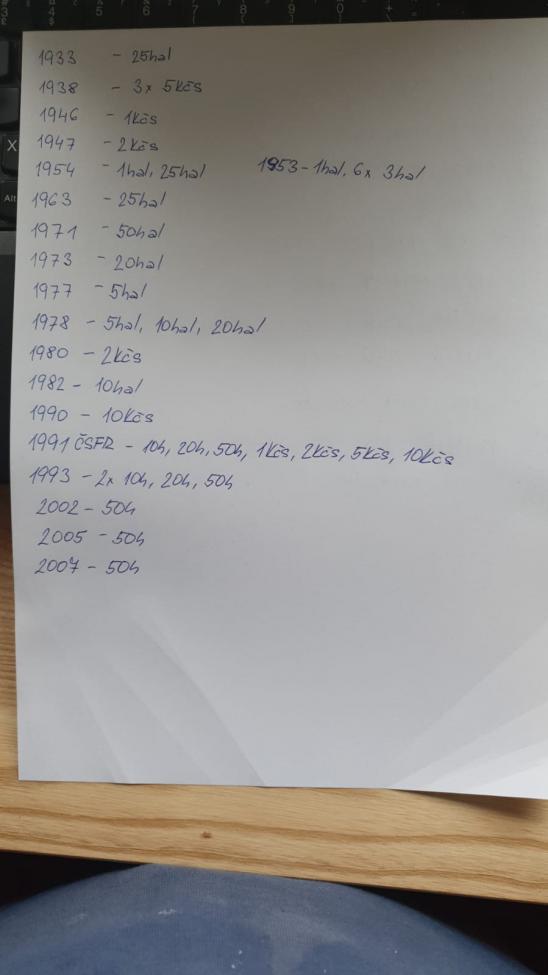 1933 - 25hal
1938 - 3x 5Kčs
1946 - 1Kčs
1947 - 2Kčs
1954 - 1hal, 25hal 1953 - 1hal, 6x 3hal
1963 - 25hal
1971 - 50hal
1973 - 20hal
1977 - 5hal
1978 - 5hal, 10hal, 20hal
1980 - 2Kčs
1982 - 10hal
1990 - 10Kčs
1991 ČSFR - 10h, 20h, 50h, 1Kčs, 2Kčs, 5Kčs, 10Kčs
1993 - 2x 10h, 20h, 50h
2002 - 50h
2005 - 50h
2007 - 50h